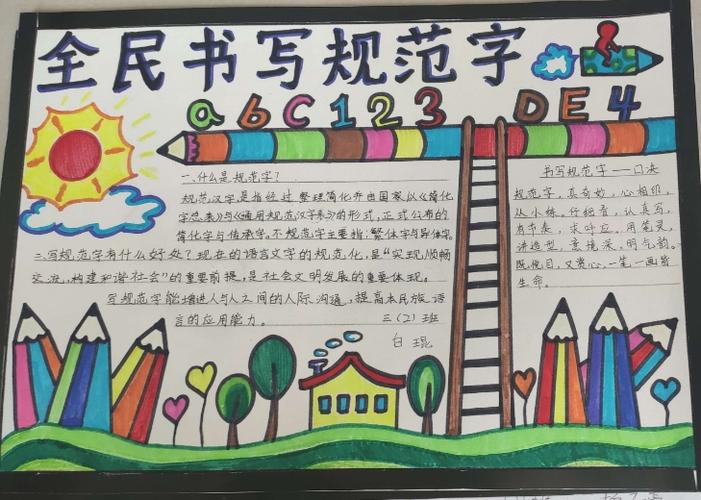 全民书写规范字
a b C 1 2 3 D E 4
一、什么是规范字?
规范汉字是指经过整理简化并由国家以《简化
字总表》与《通用规范汉字表》的形式,正式公布的
简化字与传承字。不规范字主要指:繁体字与异体字。
二、写规范字有什么好处?现在的语言文字的规范化,是“实现顺畅
交流,构建和谐社会”的重要前提,是社会文明发展的重要体现。
写规范字能增进人与人之间的人际沟通,提高本民族语
言的应用能力。
三(2)班
白琨
书写规范字——口决
规范字,真奇妙,心相织,
从小练,仔细看,认真写,
有节奏,求呼应,用笔灵,
讲造型,意境深,明气韵。
既悦目,又赏心,一笔一画皆
生命。